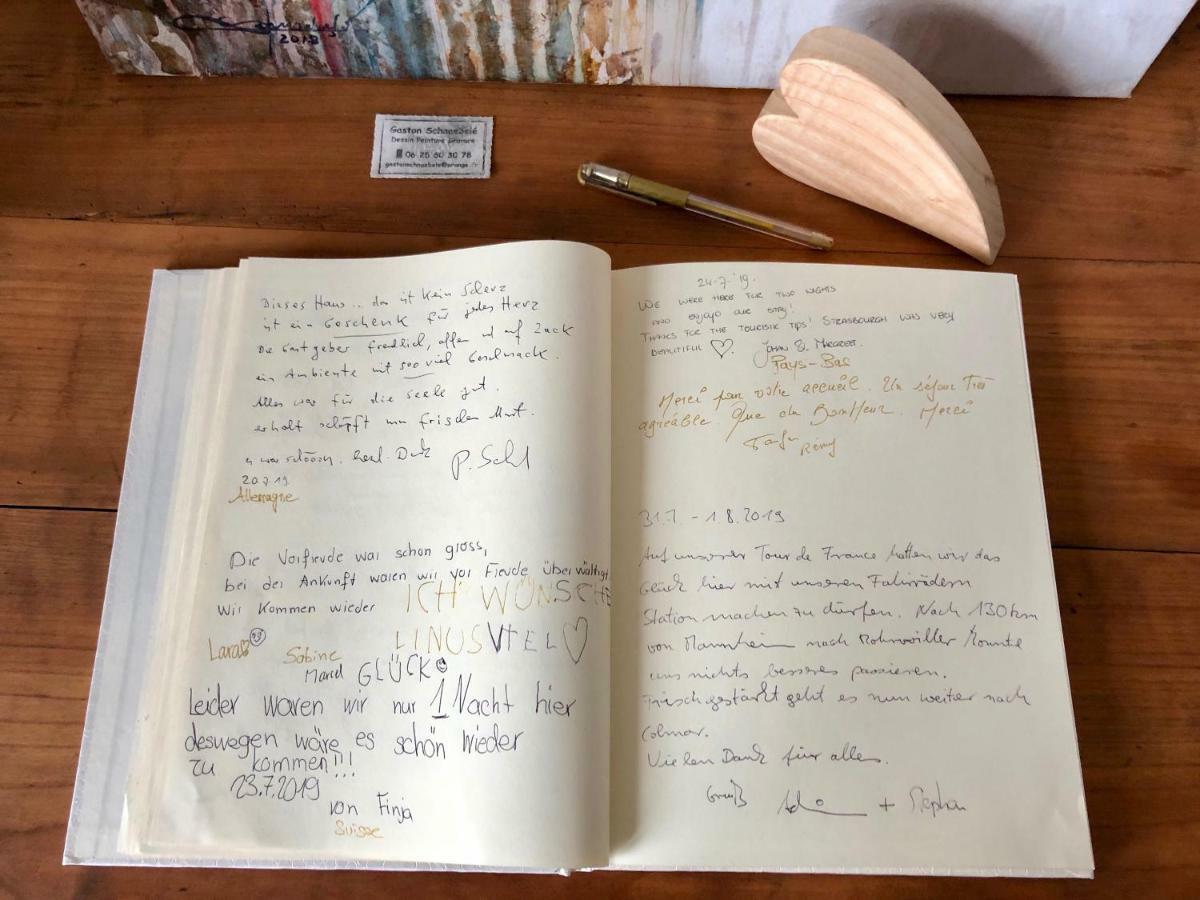 2018
Gaston Schnoebelé
Dessin Peinture Gravure
06 25 60 30 78
Dieses Haus... das ist kein Scherz
ist ein Geschenk für jedes Herz
Die Gastgeber freundlich, offen und auf Zack
ein Ambiente mit soo viel Geschmack.
Alles war für die Seele gut.
erholt schöpft man frischen Mut.
es war schöön. herzl. Dank
20.7.19
Allemagne
Die Vorfreude war schon gross,
bei der Ankunft waren wir vor Freude überwältigt
Wir kommen wieder
ICH WÜNSCHE
LINUS VIEL ♡
GLÜCK
Lara
Sabine
Marcel
Leider waren wir nur 1 Nacht hier
deswegen wäre es schön wieder
zu kommen!!!
23.7.2019
von Finja
Suisse
24-7-'19.
WE WERE HERE FOR TWO NIGHTS
AND ENJOYD OUR STAY!
THANKS FOR THE TOURISTIK TIPS! STRASBOURG WAS VERY
BEAUTIFUL ♡. JOHN & MARGREET.
Pays-Bas
Merci pour votre accueil. Un séjour Très
agréable. Que du Bonheur. Merci
Rémy
31.7. - 1.8.2019
Auf unserer Tour de France hatten wir das
Glück hier mit unseren Fahrrädern
Station machen zu dürfen. Nach 130 km
von Mannheim nach Rohrwiller konnte
uns nichts besseres passieren.
Frisch gestärkt geht es nun weiter nach
Colmar.
Vielen Dank für alles.
Gruß + Stephan